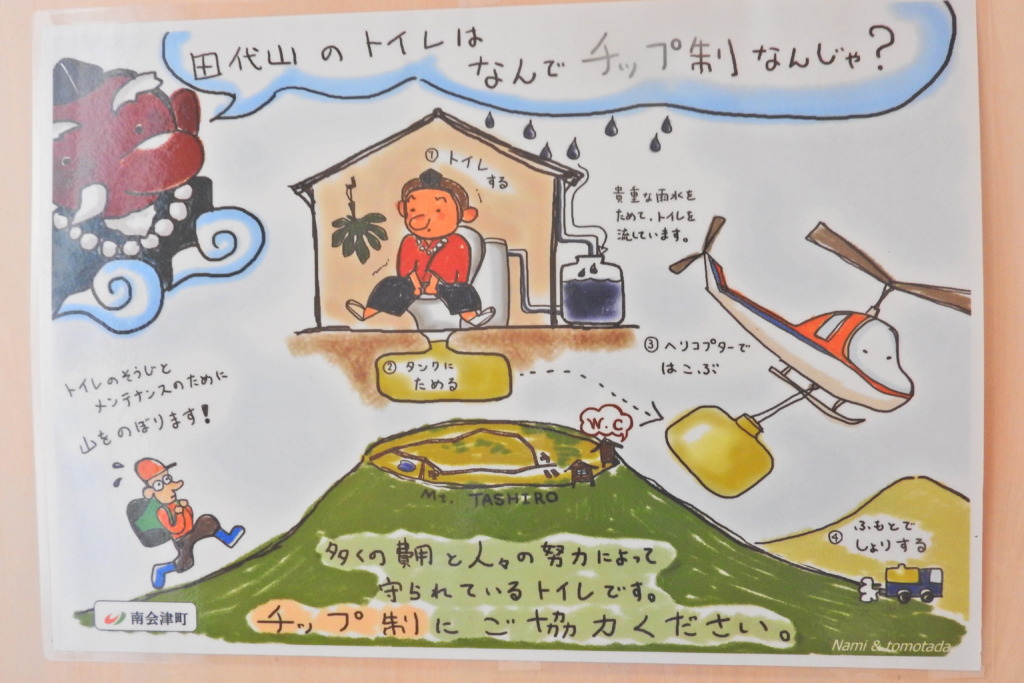 田代山のトイレは
なんでチップ制なんじゃ？
① トイレ
する
貴重な雨水を
ためて、トイレを
流しています。
② タンクに
ためる
③ ヘリコプターで
はこぶ
トイレのそうじと
メンテナンスのために
山をのぼります！
W.C
Mt. TASHIRO
④ ふもとで
しょりする
多くの費用と人々の努力によって
守られているトイレです。
チップ制にご協力ください。
南会津町
Nami & tomotada